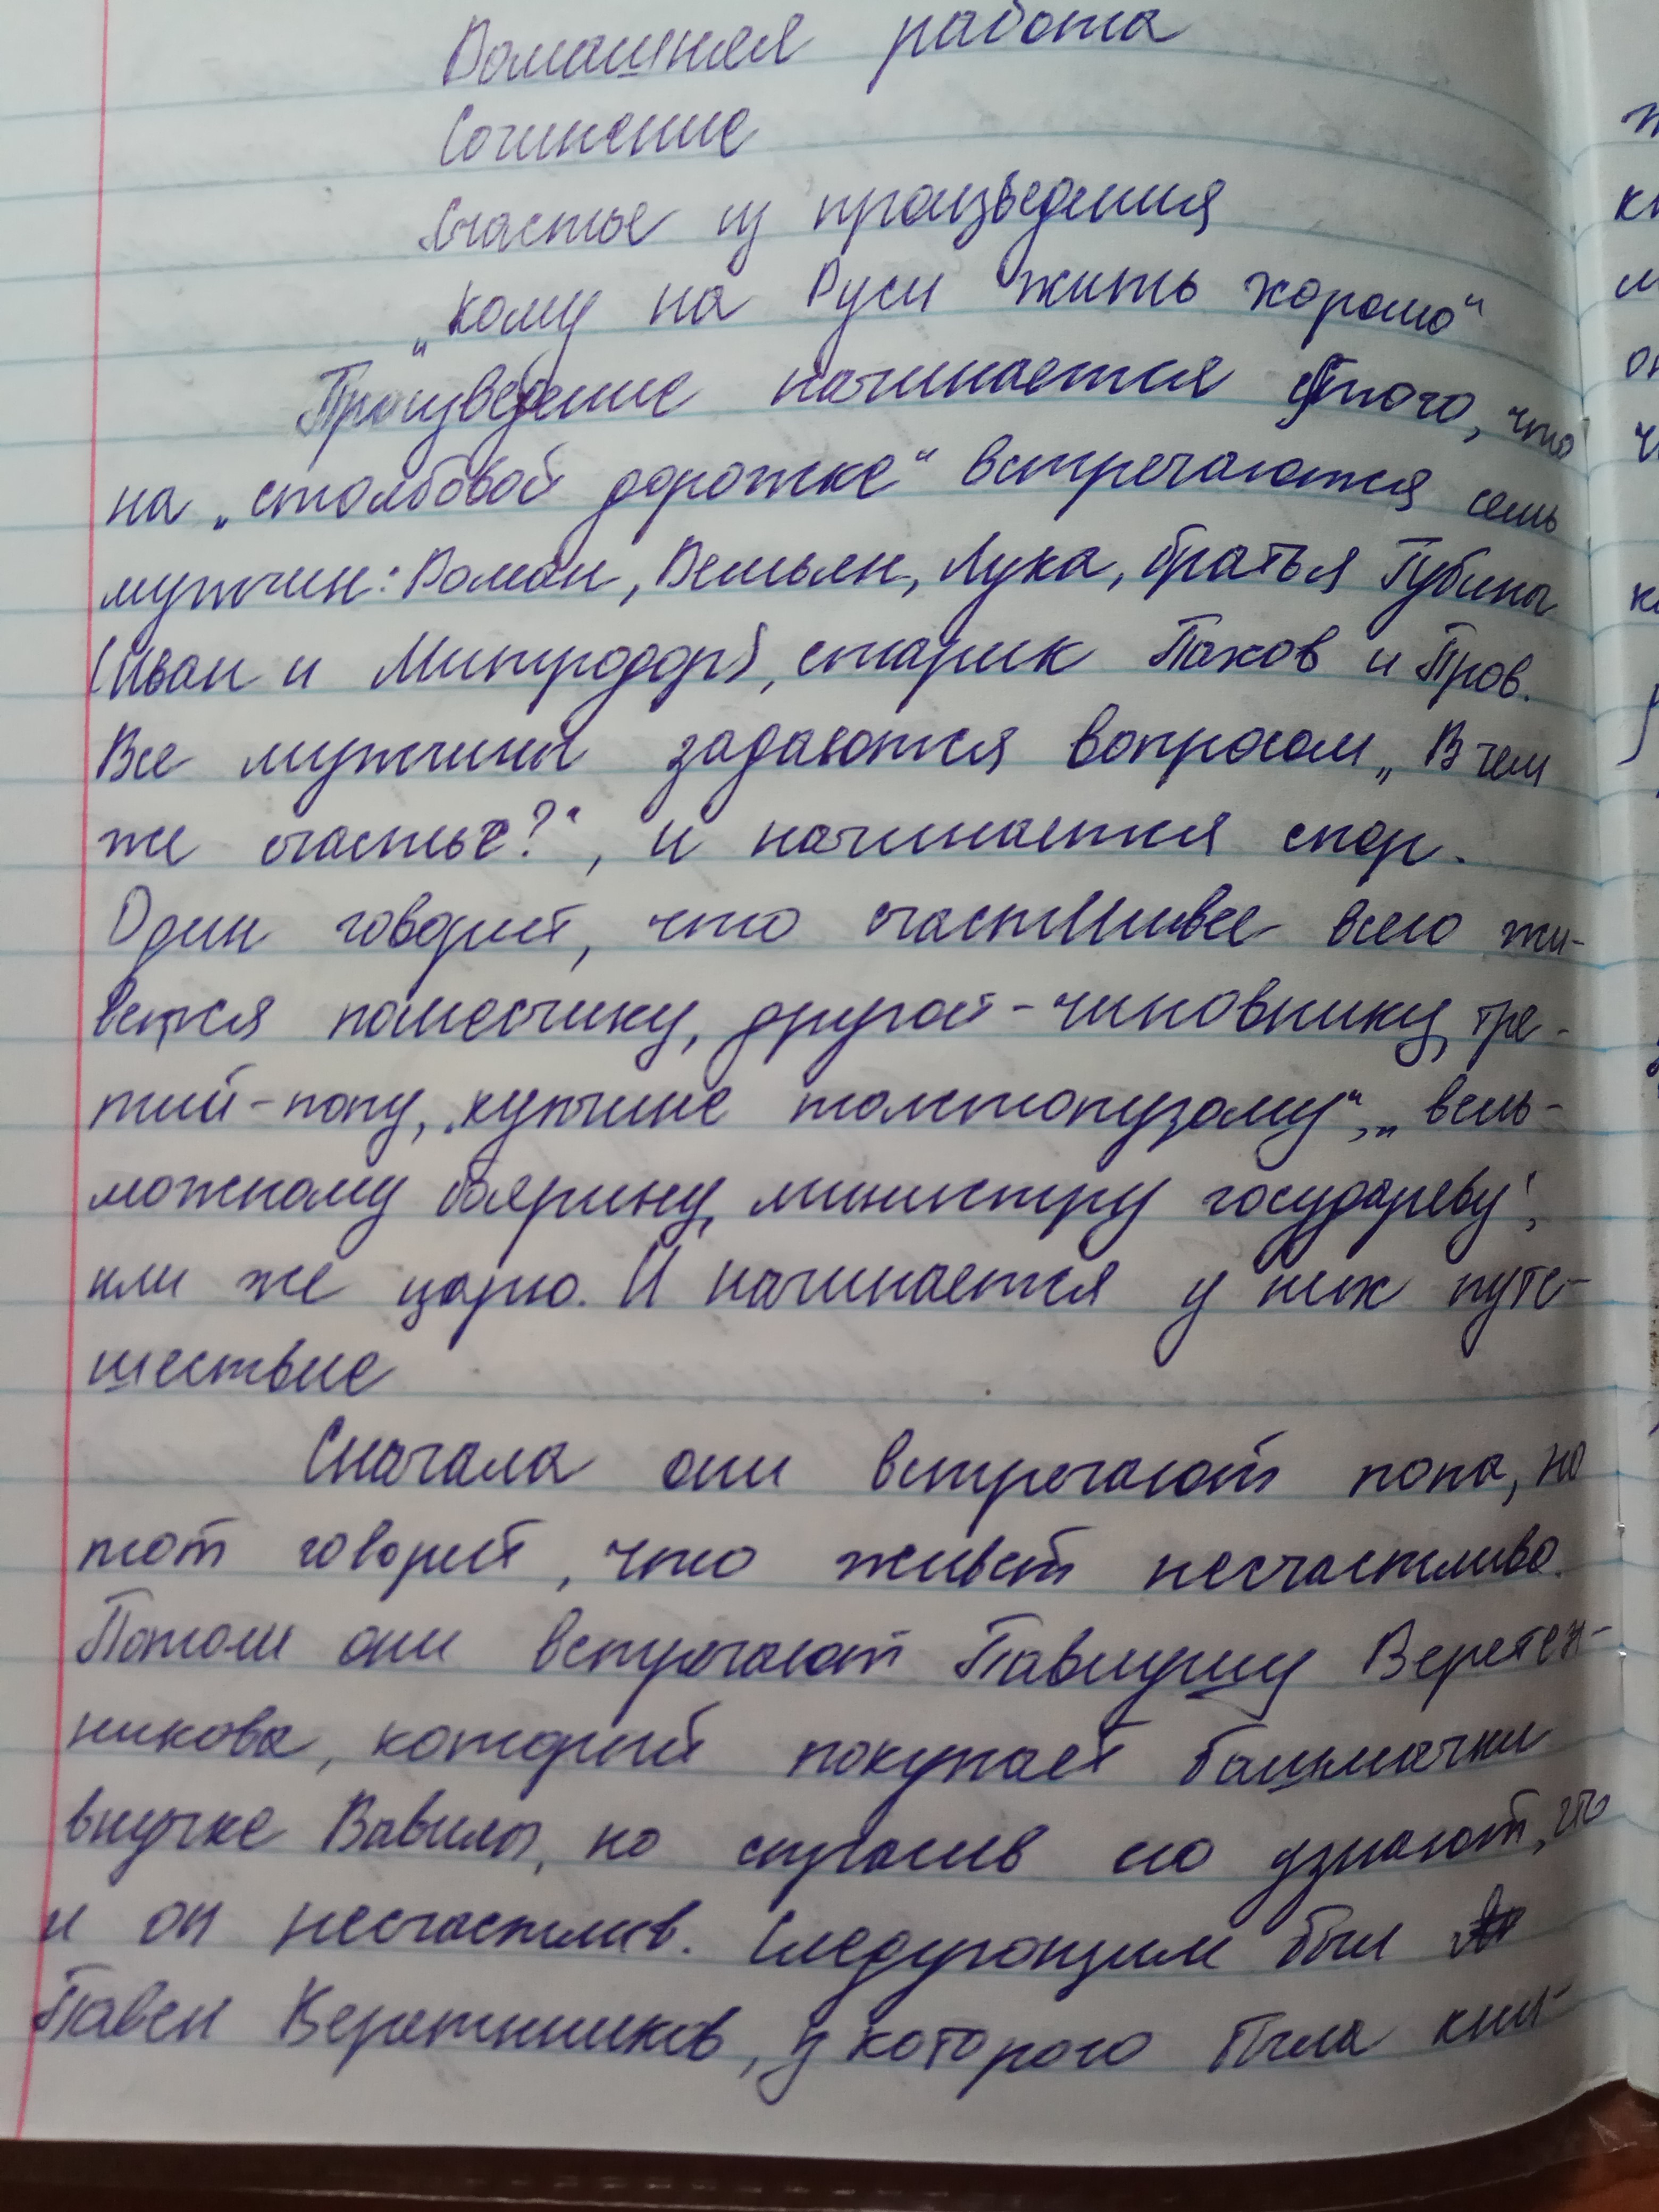 Домашняя работа
Сочинение
Счастье из произведения
„Кому на Руси жить хорошо“
Произведение начинается с того, что
на „столбовой дорожке“ встречаются семь
мужчин: Роман, Демьян, Лука, братья Губины
(Иван и Митродор), старик Пахов и Пров.
Все мужчины задаются вопросом „В чем
же счастье?“, и начинается спор.
Один говорит, что счастливее всего жи-
вется помесчику, другой - чиновнику, тре-
тий - попу, „купчине толстопузому“, „вель-
можному боярину, министру государеву“,
или же царю. И начинается у них путе-
шествие
Сначала они встречают попа, но
тот говорит, что живет несчастливо.
Потом они встречают Павлушу Веретен-
никова, который покупает башмачки
внучке Вавилы, но слушав его узнают, что
и он несчастлив. Следующим был
Павел Веретнников, у которого была кни-